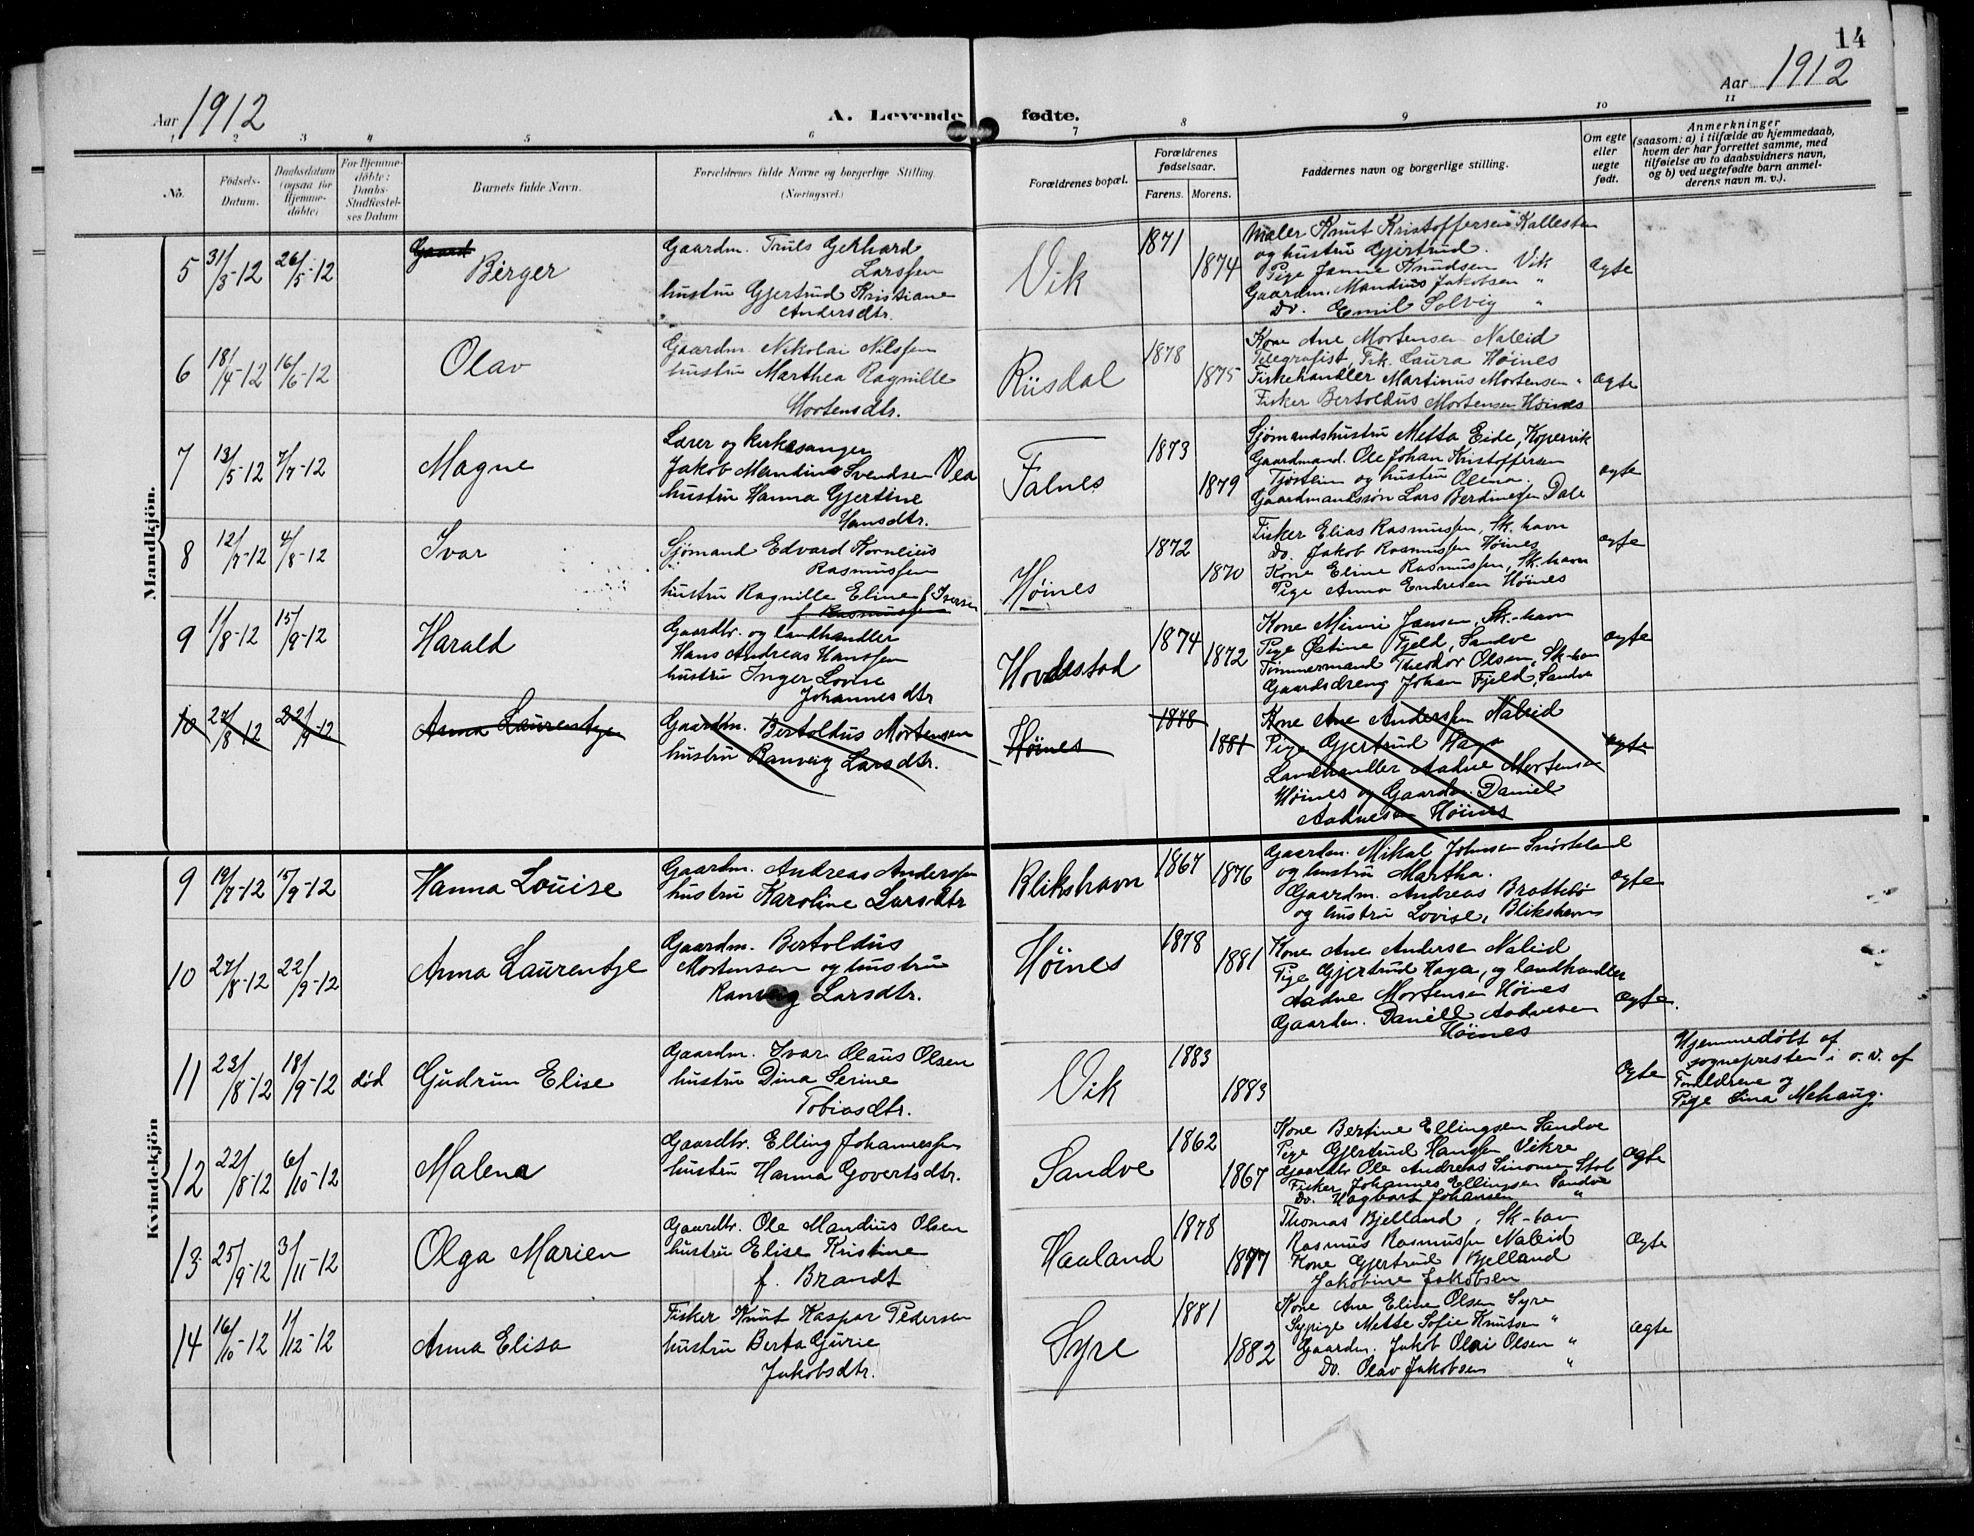 14
Aar 1912
A. Levende fødte.
Aar 1912
1 2 3 4 5 6 7 8 9 10 11
No.
Fødsels-Datum.
Daabsdatum (ogsaa for Hjemme-døbte)
For Hjemme-døbte: Daabs-Stadfæstel-ses Datum
Barnets fulde Navn.
Forældrenes fulde Navne og borgerlige Stilling. (Næringsvei.)
Forældrenes bopæl.
Forældrenes fødselsaar.
Farens. Morens.
Faddernes navn og borgerlige stilling.
Om egte eller uegte født.
Anmerkninger
(saasom: a) i tilfælde av hjemmedaab,
hvem der har forrettet samme, med
tilføielse av to daabsvidners navn,
og b) ved uegtefødte barn anmel-
derens navn m. v.).
Mandkjøn.
5 31/3-12 26/5-12 Gaard Birger
Gaardm. Truls Gerhard
Larssen
hustru Gjertrud Kristiane
Andersdtr.
Vik 1871 1874
Maler Knut Kristoffersen Kallesten
og hustru Gjertrud.
Pige Janne Knudsen Vik
Gaardm. Mandius Jakobsen "
Do. Emil Solvig "
ægte
6 18/4-12 16/6-12 Olav
Gaardm. Nikolai Nilssen
hustru Marthea Ragnille
Mortensdtr.
Riisdal 1878 1875
Kone Ane Mortensen Naleid
Telegrafist, Frk. Laura Høines
Fiskehandler Martinus Mortensen "
Fisker Bertoldus Mortensen Høines
ægte
7 13/5-12 7/7-12 Magne
Lærer og kirkesanger
Jakob Mandius Svendsen Vea
hustru Hanna Gjertine
Hansdtr.
Falnes 1873 1879
Sjømandshustru Metta Eide, Kopervik
Gaardmand. Ole Johan Kristoffersen
Tjøstheim og hustru Olena.
Gaardmandssøn Lars Berdinesen Dale
ægte
8 12/7-12 4/8-12 Ivar
Sjømand Edvard Kornelius
Rasmussen
hustru Ragnille Eline f Iversen
f Rasmussen
Høines 1872 1870
Fisker Elias Rasmussen, Sk. havn
Do. Jakob Rasmussen Høines
Kone Eline Rasmussen, Sk. havn
Pige Anna Endresen Høines
ægte
9 1/8-12 15/9-12 Harald
Gaardbr. og landhandler
Hans Andreas Hanssen
hustru Inger Lovise
Johannesdtr
Hovdestad 1874 1872
Kone Minni Jansen, Sk.-havn
Pige Østine Fjeld, Sandve
Tømmermand Theodor Olsen, Sk-havn
Gaardsdreng Johan Fjeld, Sandve
ægte
10 27/8-12 22/9-12 Anna Laurentse
Gaardm. Bertoldus Mortensen
hustru Ranveig Larsdtr.
Høines 1878 1881
Kone Ane Anderssen Naleid
Pige Gjertrud Haga
Landhandler Aadne Mortensen
Høines og Gaardm. Daniel
Aadnesen Høines
ægte
Kvindekjøn
9 19/7-12 15/9-12 Hanna Louise
Gaardm. Andreas Anderssen
hustru Karoline Larsdtr
Blikshavn 1867 1876
Gaardm. Mikal Johnsen Snørteland
og hustru Martha.
Gaardm. Andreas Brattebø
og hustru Lovise, Blikshavn
ægte
10 27/8-12 22/9-12 Anna Laurentse
Gaardm. Bertoldus
Mortensen og hustru
Ranveig Larsdtr.
Høines 1878 1881
Kone Ane Andersen Naleid
Pige Gjertrud Haga, og landhandler
Aadne Mortensen Høines
Gaardm. Daniell Aadnesen
Høines
ægte.
11 23/8-12 18/9-12 død Gudrun Elise
Gaardm. Ivar Olaus Olsen
hustru Dina Serine
Tobiasdtr.
Vik 1883 1883
ægte
Hjemmedøbt af
sognepresten i o. v. af
Forældrene og
Pige Lina Mehaug.
12 22/8-12 6/10-12 Malena
Gaardbr. Elling Johannessen
hustru Hanna Govertsdtr.
Sandve 1862 1867
Kone Bertine Ellingsen Sandve
Pige Gjertrud Hansen Vikre
Gaardbr Ole Andreas Simonsen Stol
Fisker Johannes Ellingsen Sandve
Do. Hagbart Johansen "
ægte
13 25/9-12 3/11-12 Olga Marien
Gaardbr. Ole Mandius Olsen
hustru Elise Kristine
f. Brandt
Haaland 1878 1877
Thomas Bjelland, Sk-havn
Rasmus Rasmussen Naleid
Kone Gjertrud Bjelland
Jakobine Jakobsen
ægte
14 16/10-12 1/12-12 Anna Elisa
Fisker Knut Kaspar Pedersen
hustru Berta Gurie
Jakobsdtr.
Syre 1881 1882
Kone Ane Eline Olsen Syre
Sypige Mette Sofie Knutsen "
Gaardm. Jakob Olai Olsen "
Do. Olav Jakobsen "
ægte